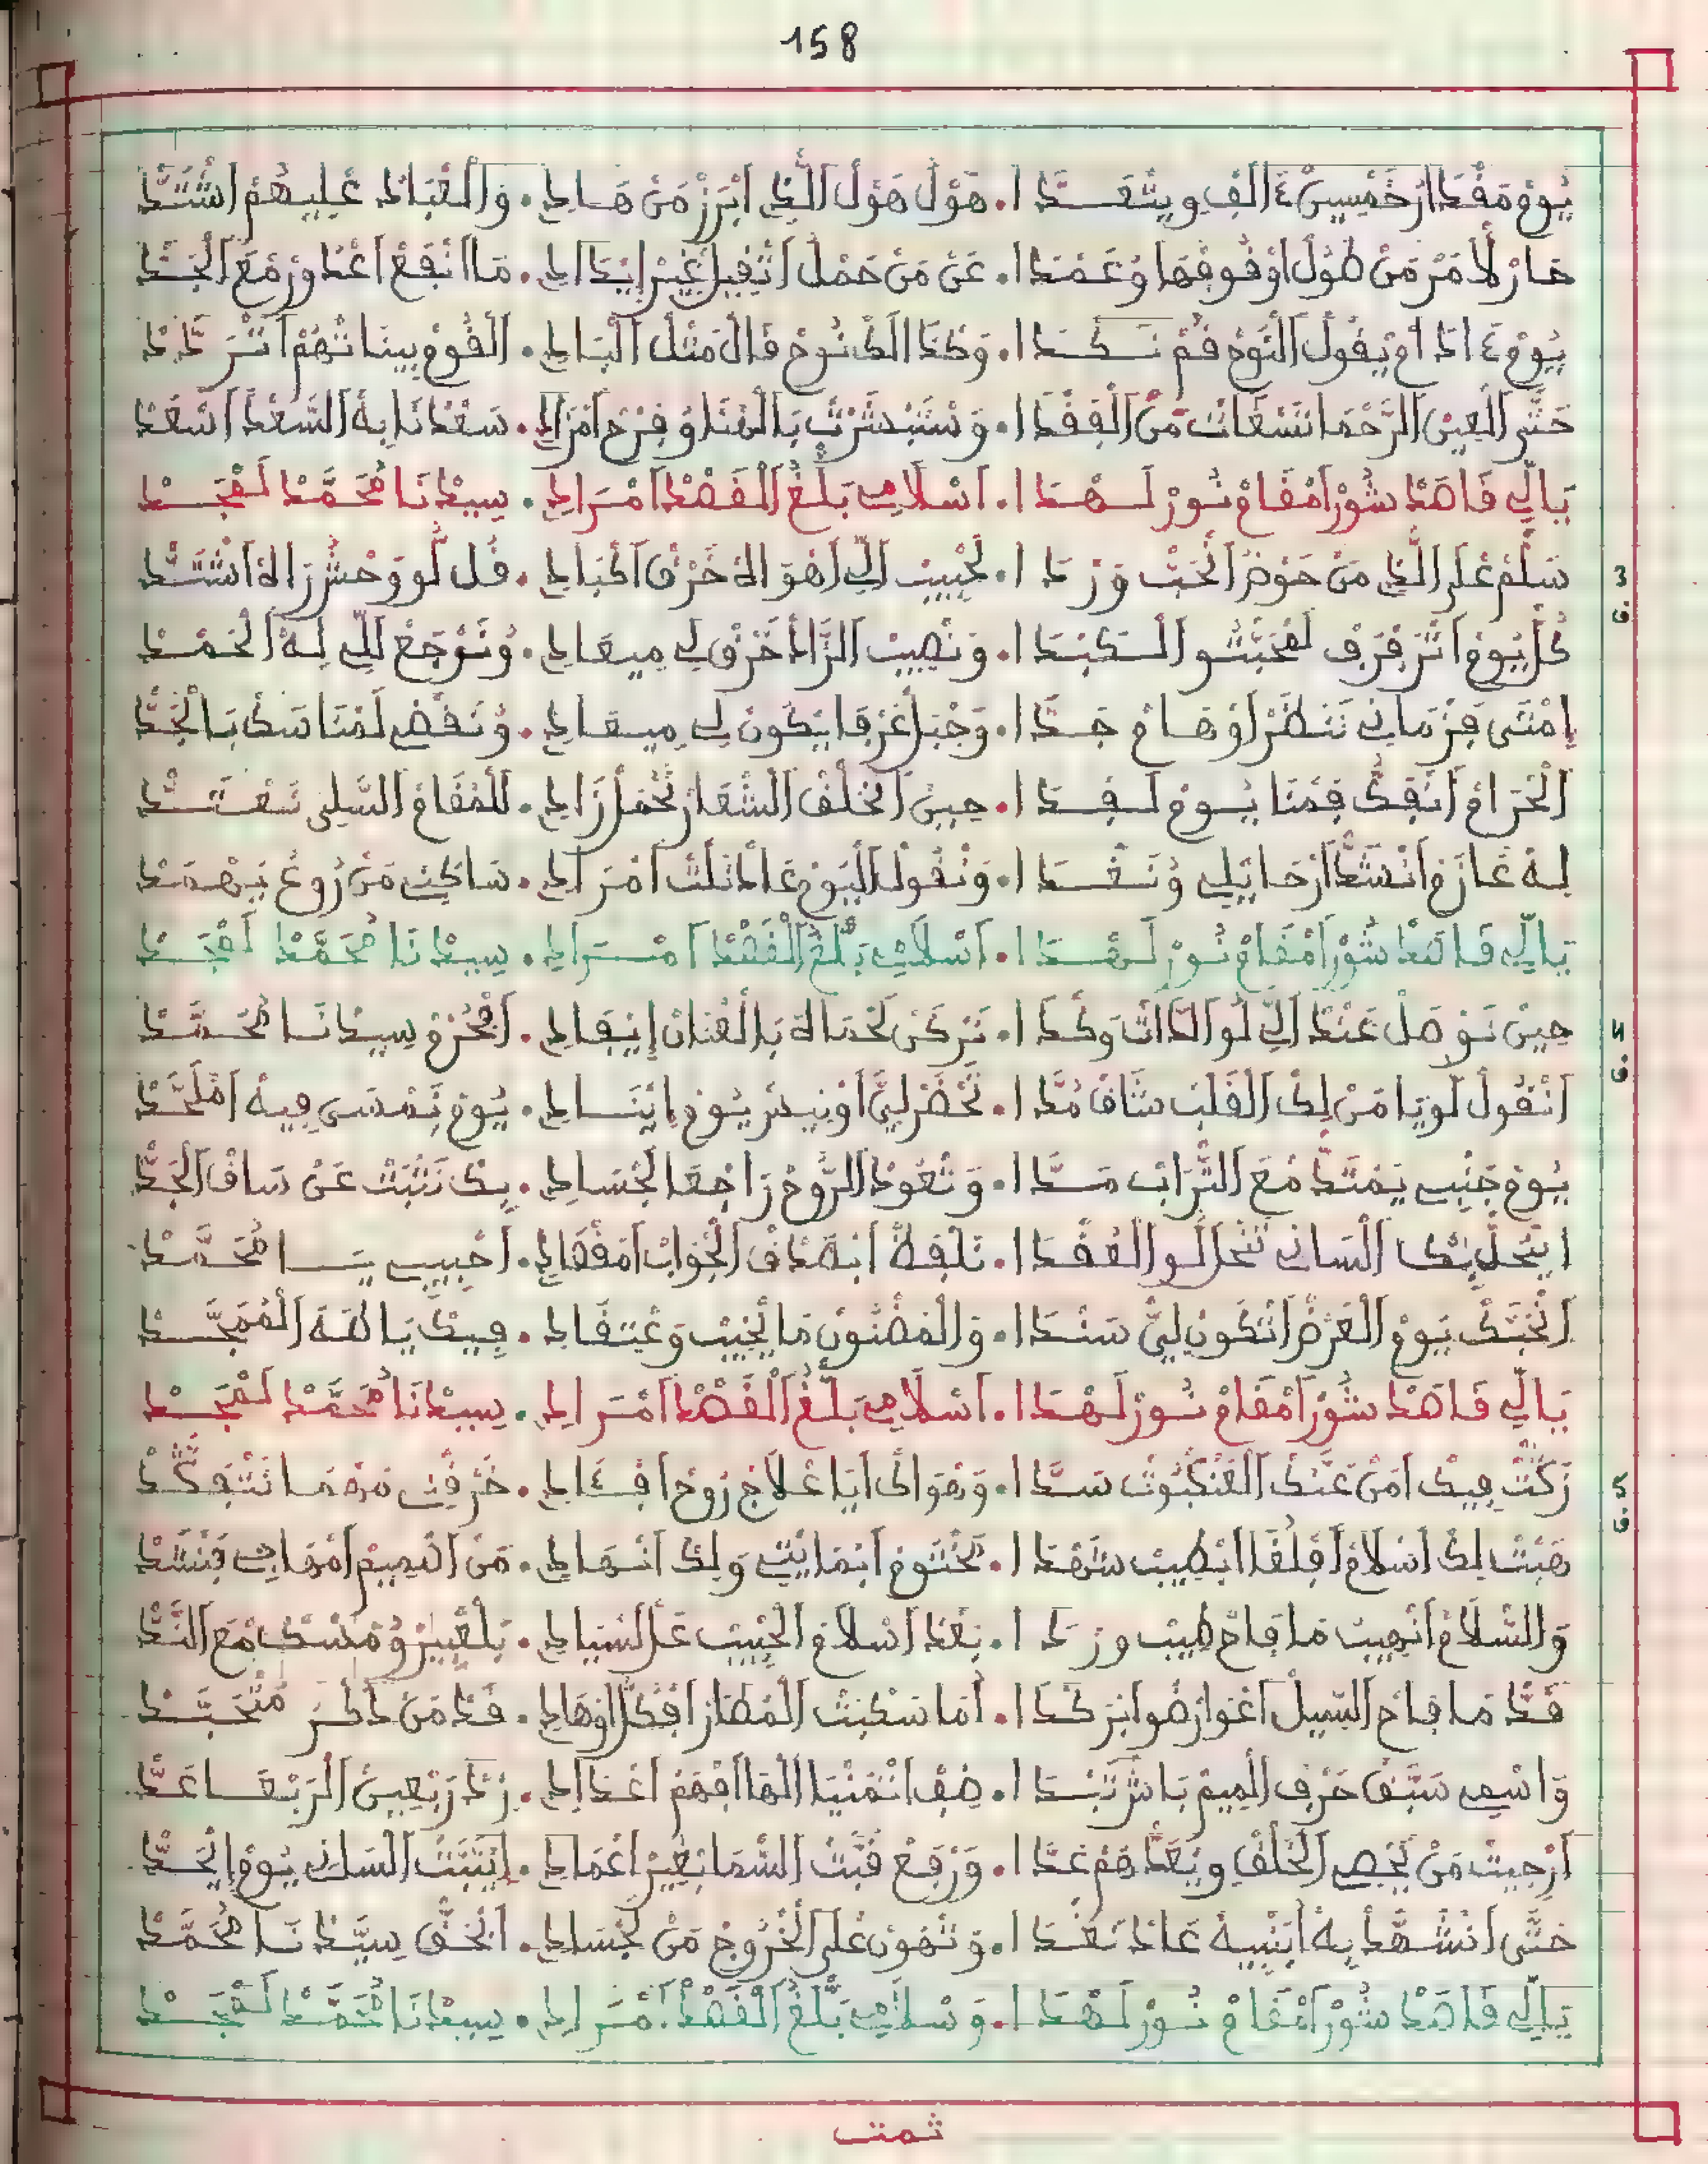 158
يُومْ مَقْدَارْ خَمْسِينْ ءَالَفْ ويتْعَدَّا . هَوْلْ هَوْلْ الَّذِي ابْرَزْ مَنْ هَادِي . وَالْعْبَادْ عْلِيهُمْ اشْتَدّْ
حَازْ لَامَرْ مَنْ طُولْ اوْقُوفْهَا وُعَمْدَا . عَنْ مَنْ حْمَلْ اثْقِيلْ غِيرْ إيدَادِي . مَا انْفَعْ اعْدُورْ مْعَ الْجَدّْ
يُومْ ءَادَامْ يْقُولْ النُّوحْ قُمْ نَكْدَا . وَكْدَالَكْ نُوحْ قَالْ مَثْلْ الْبَادِي . الْقُومْ بِينَاتْهُمْ اتْرَدَّدْ
حَتَّى الْعِينْ الرَّحْمَا نَسْعَاتْ مَنْ الْفَقْدَا . وَسْتَبْشْرَتْ بَالْهْنَا وُفِرْحْ امْرَادِي . سَعْدْنَا بِهْ السَّعْدْ اسْعَدْ
يَالِّي قَاصَدْ شُورْ امْقَامْ نُورْ لَهْدَا . اسْلَامِي بَلَّغْ الْقَصْدْ امْرَادِي . سِيدْنَا مُحَمَّدْ لَمْجَدْ
ق 3
سَلَّمْ عْلَى الَّذِي مَنْ حَوْضْ الْحَبّْ وَرْدَا . لَحْبِيبْ الِّي اهْوَاهْ حَرْقْ اكْبَادِي . قُلْ لُو وَحْشْ رَاهْ اشْتَدّْ
كُلّْ يُومْ اتْرَفْرَفْ لَمْحَبْتُو الْكَبْدَا . وَنْصِيبْ الزَّادْ خَرْقْ لِي مِيعَادِي . وُنَوْجَعْ لَلِّي لِهْ الْحَمْدْ
إمْتَى فِزْمَانِي نَنْظَرْ اوْهَامْ جَدَّا . وَجْبَلْ عَرْفَا يْكُونْ لِي مِيعَادِي . وُنَقْضِي لَمْنَاسَكْ بَالْجَدّْ
الْحَرَامْ انْفَكّْ فَمْنَا يُومْ لَفْدَا . حِينْ انْحَلَّقْ الشّْعَارْ نَحْمَلْ زَادِي . لَلْمْقَامْ السَّلِي نَعْتَدّْ
لِهْ عَازَمْ انْشَدّْ ارْحَايْلِي وُنَغْدَا . وَنْقُولْ الْيُومْ عَادْ نَلْتْ امْرَادِي . سَاكْنِي مَنْ رُوعْ يَهْمَدْ
يَالِّي قَاصَدْ شُورْ امْقَامْ نُورْ لَهْدَا . اسْلَامِي بَلَّغْ الْقَصْدْ امْرَادِي . سِيدْنَا مُحَمَّدْ لَمْجَدْ
ق 4
حِينْ نَوْصَلْ عَنْدْ الِّي لُو الْدَّاتْ وَكْدَا . نَرْكَنْ لَحْمَاهْ بَالْعْنَانْ إيفَادِي . افْخُرْمْ سِيدْنَا مُحَمَّدْ
انْقُولْ لُو يَا مَنْ لِكْ الْقَلْبْ شَاقْ مُدَّا . تَحْضَرْ لِيَّ اوْنِيسْ يُومْ إيْنَادِي . يُومْ نَمْسَى فِيهْ امْلَحَّدْ
يُومْ جَنْبِي يَمْتَدّْ مْعَ التّْرَابْ مَدَّا . وَتْعُودْ الرُّوحْ رَاجْعَا لَجْسَادِي . بِكْ نَثْبَتْ عَنْ سَاقْ الْجَدّْ
ايْنْحَلّْ بِكْ الْسَانِي تَنْحَلّْ لُو الْعُقْدَا . نَلْقِهْ ابْصَدْقْ الْجْوَابْ امْقَادِي . احْبِيبِي يَا مُحَمَّدْ
انْحَبَّكْ يَوْمْ الْعَرْضْ اتْكُونْ لِيَّ سَنْدَا . وَالْمَضْنُونْ مَا يْخِيبْ وَعْتِقَادِي . فِيكْ يَا طَهَ الْمُمَجَّدْ
يَالِّي قَاصَدْ شُورْ امْقَامْ نُورْ لَهْدَا . اسْلَامِي بَلَّغْ الْقَصْدْ امْرَادِي . سِيدْنَا مُحَمَّدْ لَمْجَدْ
ق 5
رَكْتْ فِيكْ امَنْ عَنَّكْ الْعَنْكَبُوتْ سَدَّا . وَهْوَاكْ ايَا عْلَاجْ رُوحْ افْءَادِي . حَرْقْنِي مَهْمَا نَتْفَكَّدْ
هَبْتْ لِكْ اسْلَامْ اقْلَفَا ابْطِيبْ شَهْدَا . مَخْتُومْ ابْمَا يْتِي وَلِكْ انْهَادِي . مَنْ الْمِيمْ امْهَاتِي فَنْشَدْ
وَالسَّلَامْ انْهِيبْ مَا فَاحْ طِيبْ وَرْدَا . بَعْدْ اسْلَامْ الْحْبِيبْ عَلْ لَسْيَادِي . بَلْعْبِيرْ وُمَسْكْ مْعَ النَّدّْ
قَدّْ مَا فَاحْ السِّيلْ اعْوَارْضُو ابْرَكْدَا . امَا سَكْبَتْ الْمْطَارْ افْكُلّْ اوْهَادِي . قَدّْ مَنْ ذَاكَرْ مُتْحَبَّدْ
وَاسْمِي سَبَّقْ حَرْفْ الْمِيمْ بَاشْ تَبْدَا . ضِفْ اثْمَنْيَا الْهَا افْهَمْ اعْدَادِي . زَدْ رَبْعِينْ الرَبْعَا عَدّْ
ارْجِيتْ مَنْ يَحْصِي الْخَلْقْ وِيعَدّْهُمْ عَدَّا . وَرْفَعْ قُبَّتْ السّْمَا بْغِيرْ اعْمَادِي . ايْثَبَّتْ السَانِي يُومْ إيْحَدّْ
حَتَّى انْشَهَّدْ بِهْ ابْنْبِيهْ عَادْ نَغْدَا . وَتْهُونْ عْلَى الْخْرُوجْ مَنْ لَجْسَادِي . ابْحَقّْ سِيَّدْنَا مُحَمَّدْ
يَالِّي قَاصَدْ شُورْ امْقَامْ نُورْ لَهْدَا . وَسْلَامِي بَلَّغْ الْقَصْدْ امْرَادِي . سِيدْنَا مُحَمَّدْ لَمْجَدْ
تمت